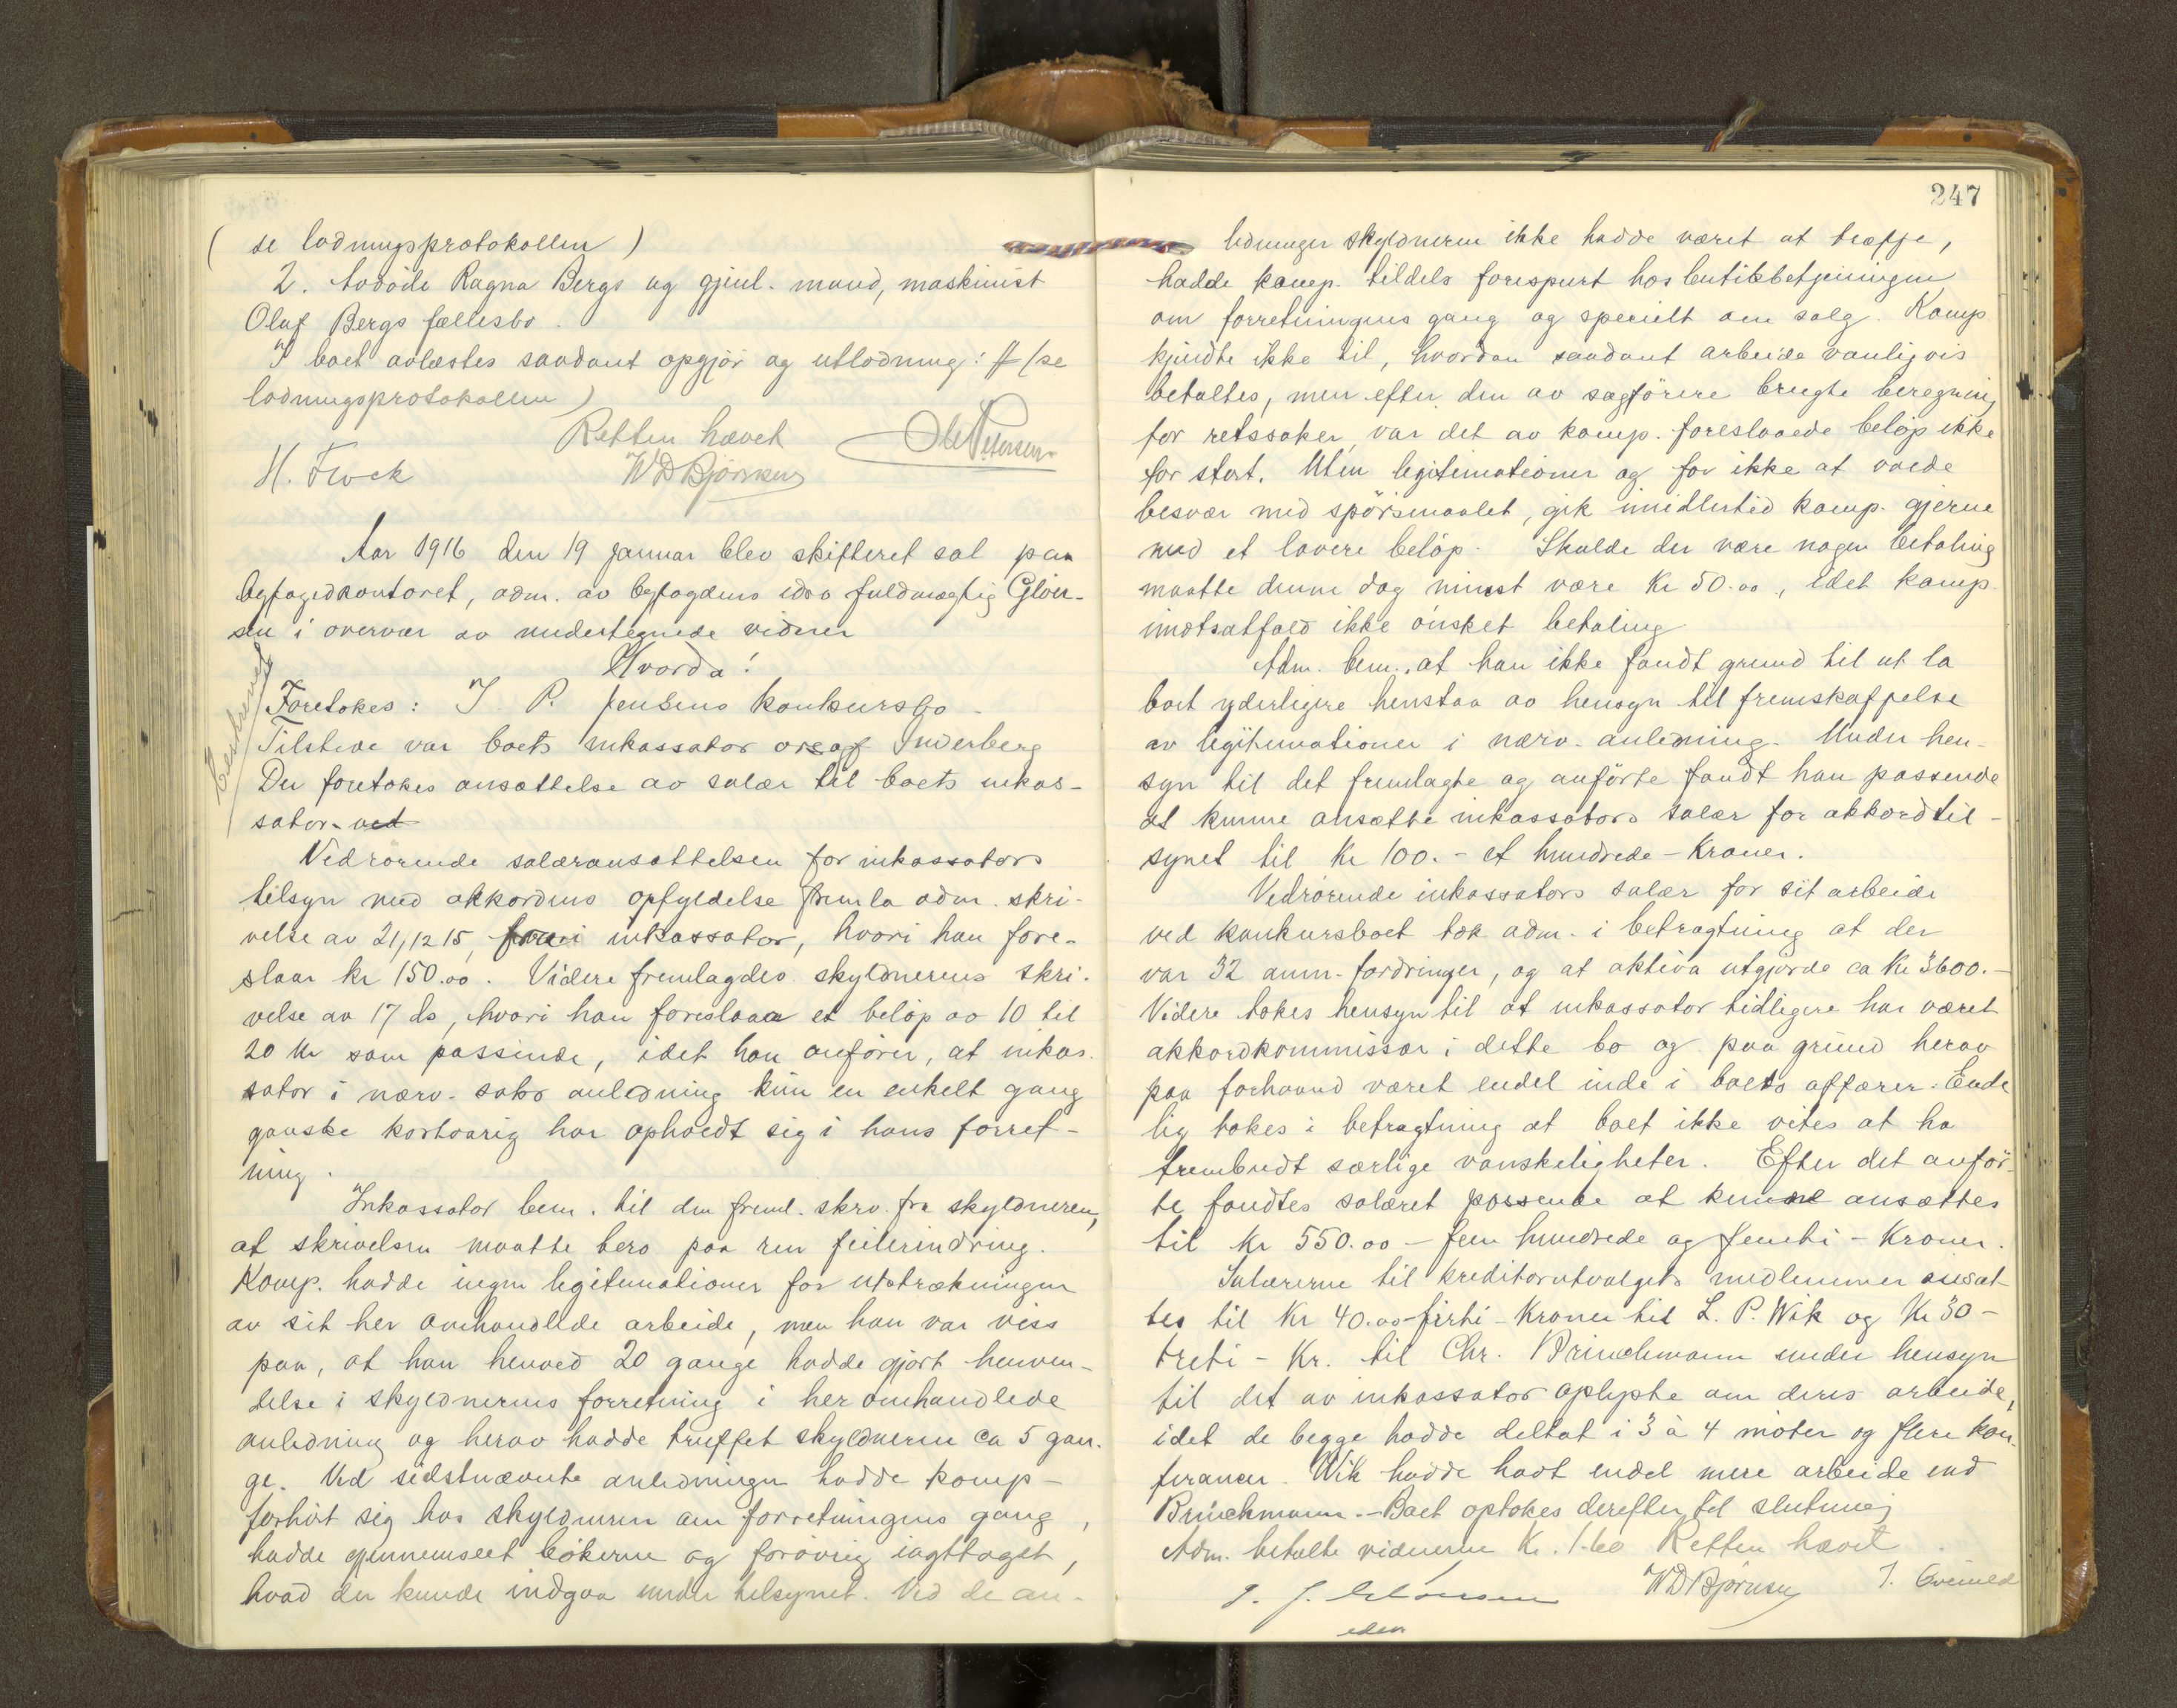 ( se lodningsprotokollen )
2. Avdöde Ragna Bergs og gjenl. mand, maskinist
Olaf Bergs fællesbo.
I boet avlæstes saadant opgjör og utlodning: # (se
lodningsprotokollen)
Retten hævet
H. Flock WDBjörnsen Ole Petersen
Aar 1916 den 19 januar blev skifteret sat paa
byfogedkontoret, adm. av byfogdens edsv fuldmægtig Gløer-
sen i overvær av undertegnede vidner
Hvorda!
Beskrevet
Foretokes: J. P. Jensens konkursbo -
Tilstede var boets inkassator orsagf Inderberg
Der foretokes ansættelse av salær til boets inkas-
sator. ved
Vedrörende salæransættelsen for inkassators
tilsyn med akkordens opfyldelse fremla adm. skri-
velse av 21/12 15, fra inkassator, hvori han fore-
slaar kr 150.00. Videre fremlagdes skyldnerens skri-
velse av 17 ds, hvori han foreslaar et belöp av 10 til
20 kr som passende, idet han anförer, at inkas-
sator i nærv. saks anledning kun en enkelt gang
ganske kortvarig har opholdt sig i hans forret-
ning.
Inkassator bem. til den freml. skrv. fra skyldneren,
at skrivelsen maatte bero paa ren feilerindring.
Komp. hadde ingen legitimationer for utstrækningen
av sit her omhandlede arbeide, men han var viss
paa, at han henved 20 gange hadde gjort henven-
delse i skyldnerens forretning i her omhandlede
anledning og herav hadde truffet skyldneren ca 5 gan-
ge. Ved sidstnævnte anledninger hadde komp-
forhört sig hos skyldneren om forretningens gang,
hadde gjennemseet bökerne og forövrig iagttaget,
hvad der kunde indgaa under tilsynet. Ved de an-
247
ledninger skyldneren ikke hadde været at træffe,
hadde komp. tildels forespurt hos butikbetjeningen
om forretningens gang og specielt om salg. Komp
kjendte ikke til, hvordan saadant arbeide vanligvis
betaltes, men efter den av sagförere brugte beregning
for retssaker, var det av komp. foreslaaede belöp ikke
for stort. Uten legitimationer og for ikke at volde
besvær med spörsmaalet, gik imidlertid komp. gjerne
med et lavere belöp. Skulde der være nogen betaling
maatte denne dog minst være Kr 50.00, idet komp.
imotsatfald ikke önsket betaling
Adm. bem., at han ikke fandt grund til at la
boet yderligere henstaa av hensyn til fremskaffelse
av legitimationer i nærv. anledning. Under hen-
syn til det fremlagte og anförte fandt han passende
at kunne ansætte inkassators salær for akkordtil-
synet til Kr 100.- et hundrede - Kroner.
Vedrörende inkassators salær for sit arbeide
ved konkursboet tok adm. i betragtning at der
var 32 anm. fordringer, og at aktiva utgjorde ca Kr 3600.-
Videre tokes hensyn til at inkassator tidligere har været
akkordkommissær i dette bo og paa grund herav
paa forhaand været endel inde i boets affærer. Ende
lig tokes i betragtning at boet ikke vites at ha
frembudt særlige vanskeligheter. Efter det anför-
te fandtes salæret passende at kunne ansættes
til kr 550.00 - fem hundrede og femti - Kroner.
Salærerne til kreditorutvalgets medlemmer ansat-
tes til Kr 40.00-firti-Kroner til L. P. Wik og Kr 30-
treti - Kr. til Chr. Brinchmann under hensyn
til det av inkassator oplyste om deres arbeide,
idet de begge hadde deltat i 3 à 4 möter og flere kon-
feranser. Wik hadde hadt endel mere arbeide end
Brinchmann.-Boet optokes derefter til slutning
Adm. betalte vidnerne Kr. 1.60 Retten hævet.
WDBjörnsen
edsv